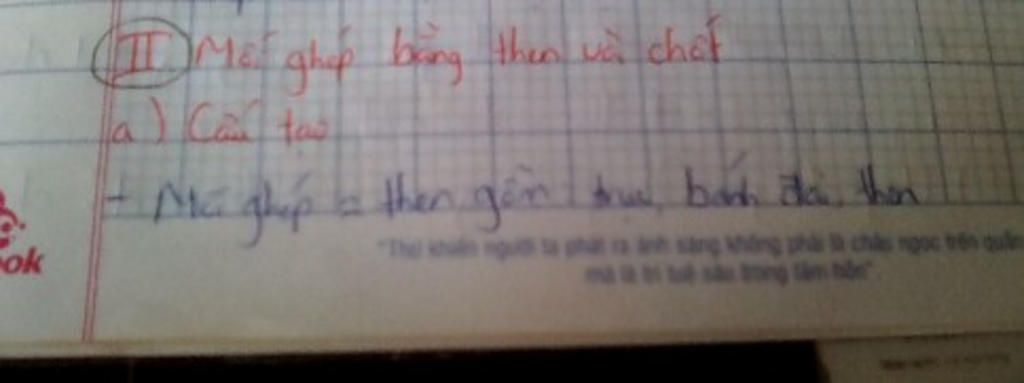 II) Mối ghép bằng then và chốt
a) Cấu tạo
+ Mối ghép = then gồm: trục, bánh đai, then
"Thứ khiến người ta phát ra ánh sáng không phải là châu ngọc trên quần
mà là trí tuệ sâu trong tâm hồn"
ok